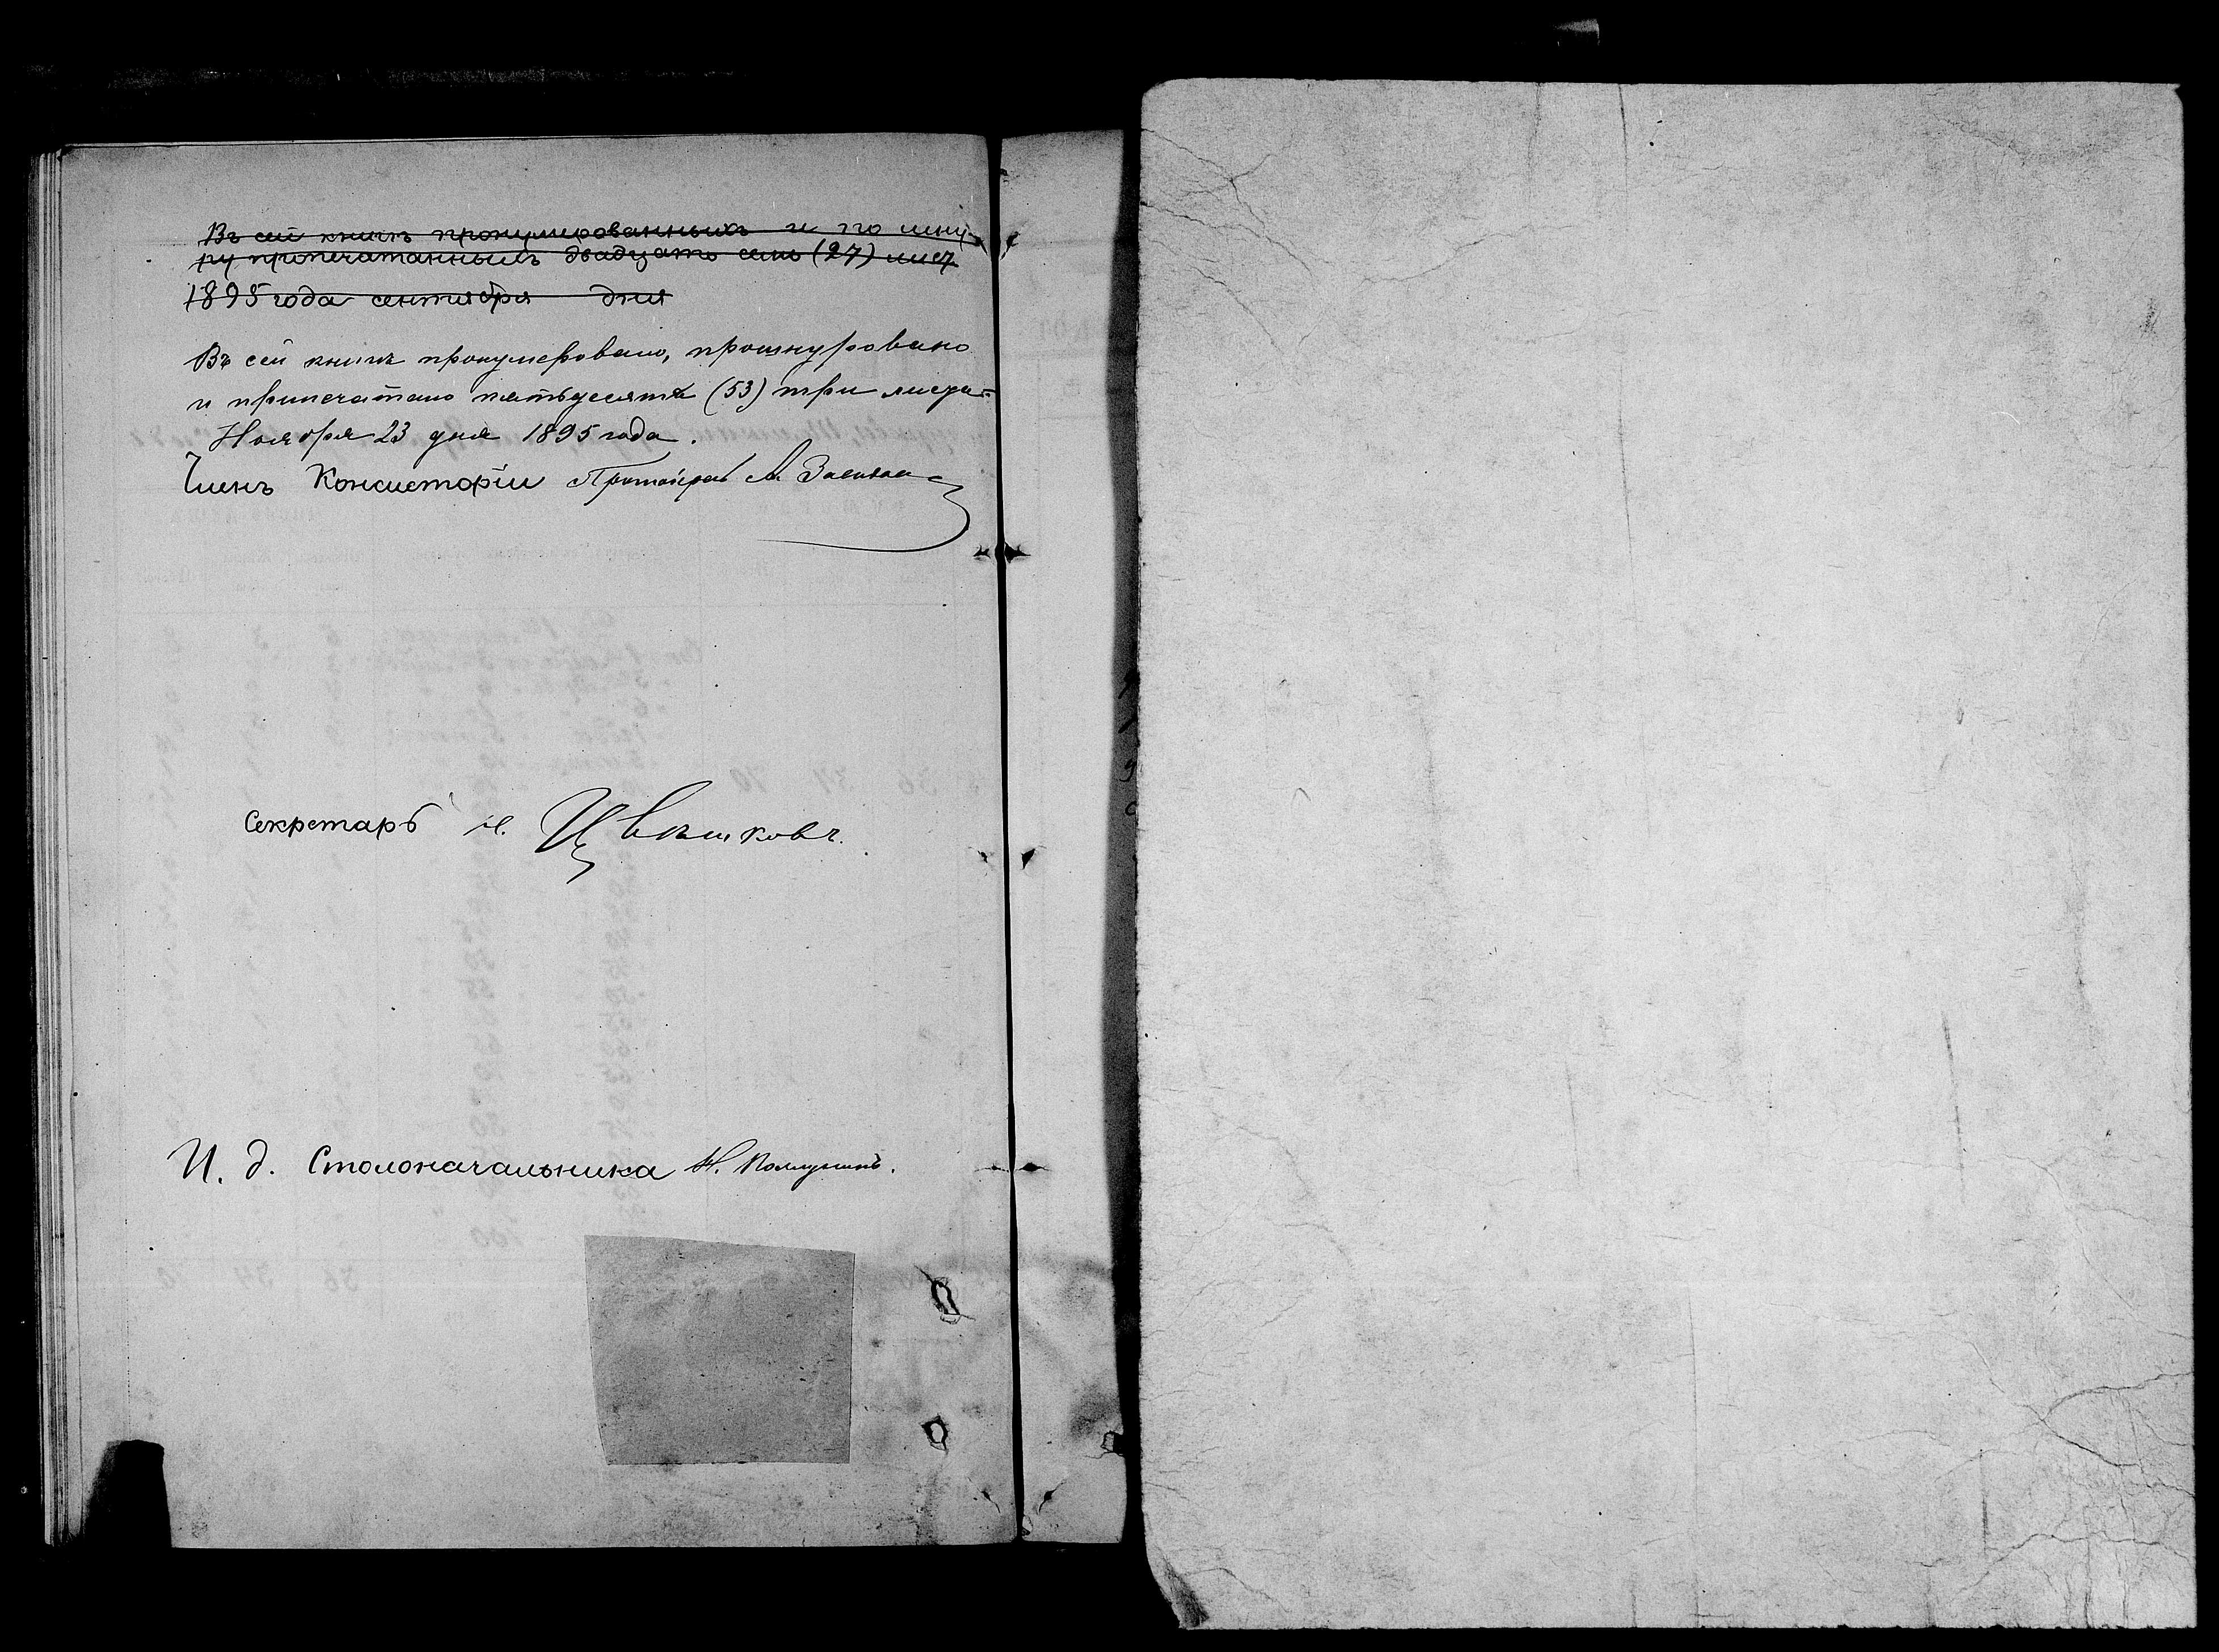 Въ сей книгѣ пронумерованныхъ и по шну-
ру припечатанныхъ двадцать семь (27) лист
1895 года сентября дня
Въ сей книгѣ пронумеровано, прошнуровано
и припечатано пятьдесятъ (53) три листа.
Ноября 23 дня 1895 года.
Членъ Консисторіи Протоіерей
Секретарь И. Цвѣтковъ.
И. д. Столоначальника Н.